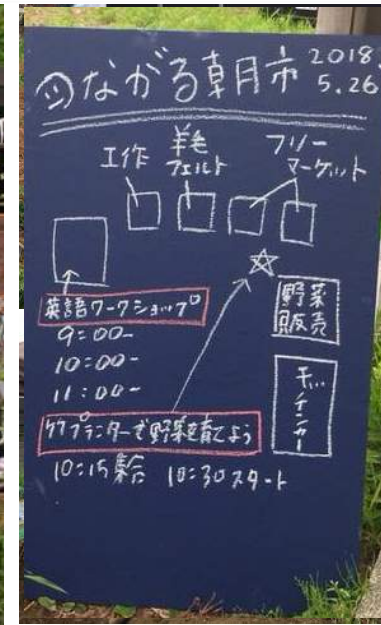 つながる朝市 2018.
5.26
工作 羊毛
フェルト
フリー
マーケット
野菜
販売
英語ワークショップ
9:00-
10:00-
11:00-
キッチンカー
竹プランターで野菜を育てよう
10:15集合 10:30スタート